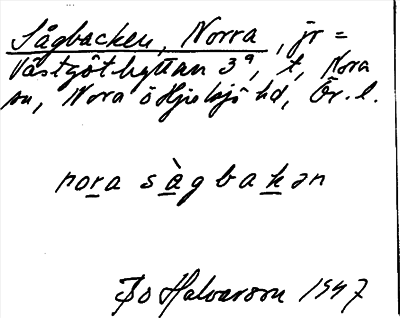 Sågbacken, Norra, jr =
Västgöthyttan 3⁹, t, Nora
sn, Nora o Hjulsjö hd, Ör. l.
nora sàgbakən
Bo Halvarson 1947